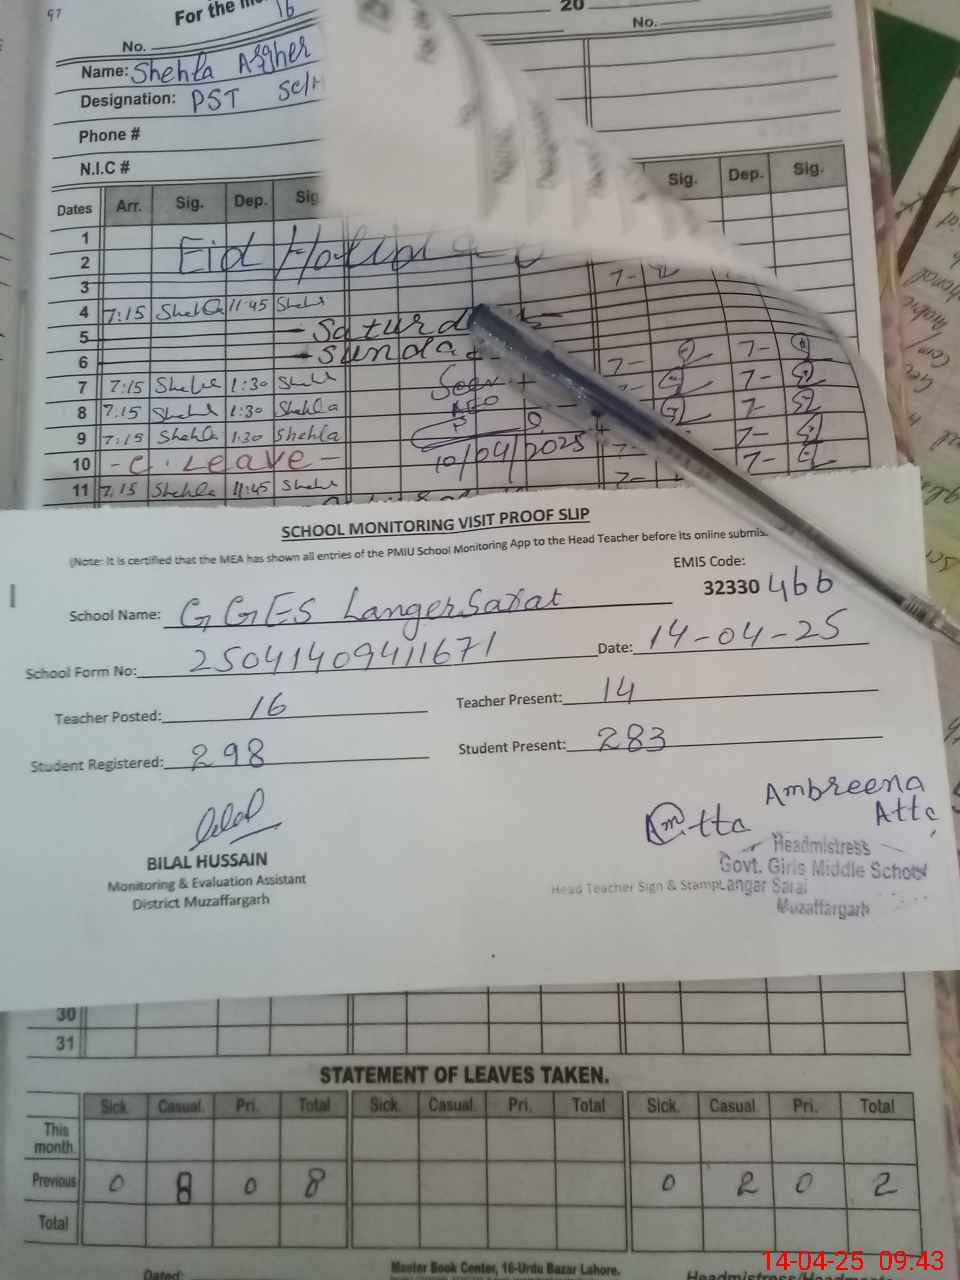 97
For the 16
20
No.
No.
Name: Shehla Asgher
Designation: PST
Phone #
N.I.C #
Dates Arr. Sig. Dep. Sig Sig. Dep. Sig.
1
2 Eid Holiday
3 7-
4 7:15 Shehla 11:45 Shehla
5 - Saturd
6 - Sunda
7 7:15 Shehla 1:30 Shehla Seen 7- 7-
8 7:15 Shehla 1:30 Shehla AEO 7-
9 7:15 Shehla 1:30 Shehla 7-
10 - C. Leave - 10/04/2025 7-
11 7:15 Shehla 11:45 Shehla 7-
SCHOOL MONITORING VISIT PROOF SLIP
(Note: It is certified that the MEA has shown all entries of the PMIU School Monitoring App to the Head Teacher before its online submis
EMIS Code:
School Name: GGES LangerSarat 32330 466
School Form No: 25041409411671 Date: 14-04-25
Teacher Posted: 16 Teacher Present: 14
Student Registered: 298 Student Present: 283
Bilal Ambreena
Atta
BILAL HUSSAIN Headmistress
Monitoring & Evaluation Assistant Govt. Girls Middle School
District Muzaffargarh Head Teacher Sign & Stamp Langar Sarai
Muzaffargarh
30
31
STATEMENT OF LEAVES TAKEN.
Sick. Casual. Pri. Total Sick. Casual. Pri. Total Sick. Casual. Pri. Total
This
month.
Previous 0 8 0 8 0 2 0 2
Total
Dated: Master Book Center, 16-Urdu Bazar Lahore. Headmistress/Head
14-04-25 09:43